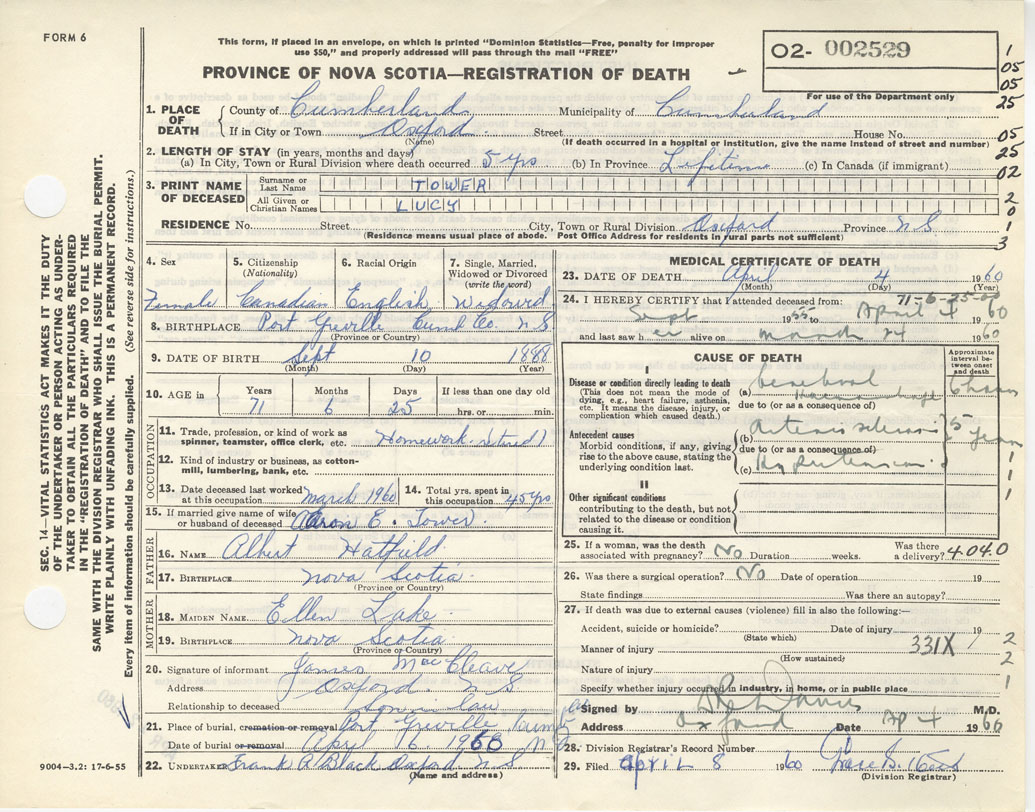 FORM 6
This form, if placed in an envelope, on which is printed "Dominion Statistics—Free, penalty for improper
use $50," and properly addressed will pass through the mail "FREE"
02- 002529
PROVINCE OF NOVA SCOTIA—REGISTRATION OF DEATH
For use of the Department only
1
05
05
25
05
25
02
2
0
1
3
1. PLACE OF DEATH { County of Cumberland Municipality of Cumberland
If in City or Town Oxford Street House No.
(Name) (If death occurred in a hospital or institution, give the name instead of street and number)
2. LENGTH OF STAY (in years, months and days)
(a) In City, Town or Rural Division where death occurred 5 yrs (b) In Province Lifetime (c) In Canada (if immigrant)
3. PRINT NAME OF DECEASED { Surname or Last Name TOWER
All Given or Christian Names LUCY
RESIDENCE No. Street City, Town or Rural Division Oxford Province N S
(Residence means usual place of abode. Post Office Address for residents in rural parts not sufficient)
4. Sex
Female
5. Citizenship
(Nationality)
Canadian
6. Racial Origin
English
7. Single, Married,
Widowed or Divorced
(write the word)
Widowed
8. BIRTHPLACE Port Greville Cumb Co. N S
(Province or Country)
9. DATE OF BIRTH Sept 10 1888
(Month) (Day) (Year)
10. AGE in { Years Months Days If less than one day old
71 6 25 hrs. or min.
OCCUPATION
11. Trade, profession, or kind of work as
spinner, teamster, office clerk, etc. Homework
12. Kind of industry or business, as cotton-
mill, lumbering, bank, etc.
13. Date deceased last worked
at this occupation March 1960
14. Total yrs. spent in
this occupation 45 yrs
15. If married give name of wife
or husband of deceased Aaron E. Tower
FATHER
16. NAME Albert Hatfield
17. BIRTHPLACE Nova Scotia
(Province or Country)
MOTHER
18. MAIDEN NAME Ellen Lake
19. BIRTHPLACE Nova Scotia
(Province or Country)
20. Signature of informant James MacCleave
Address Oxford. N S
Relationship to deceased Son in law
21. Place of burial, cremation or removal Port Greville Cumb
Date of burial or removal April 6 1960 N S
22. UNDERTAKER Frank R Black Oxford N S
(Name and address)
MEDICAL CERTIFICATE OF DEATH
23. DATE OF DEATH April 4 1960
(Month) (Day)
24. I HEREBY CERTIFY that I attended deceased from: 71-6-25-00
Sept 1955 to April 4 1960
and last saw h er alive on March 24 1960
CAUSE OF DEATH
Approximate
interval be-
tween onset
and death
I
Disease or condition directly leading to death
(This does not mean the mode of
dying, e.g., heart failure, asthenia,
etc. It means the disease, injury, or
complication which caused death.)
(a) Cerebral
Haemorrhage
6 hours
due to (or as a consequence of)
Antecedent causes
Morbid conditions, if any, giving
rise to the above cause, stating the
underlying condition last.
(b) Arteriosclerosis
5 years
due to (or as a consequence of)
(c) Hypertension
II
Other significant conditions
contributing to the death, but not
related to the disease or condition
causing it.
25. If a woman, was the death
associated with pregnancy? No Duration weeks. Was there
a delivery? 4040
26. Was there a surgical operation? No Date of operation 19
State findings Was there an autopsy?
27. If death was due to external causes (violence) fill in also the following:—
Accident, suicide or homicide? Date of injury 19
(State which)
Manner of injury 331X
(How sustained)
Nature of injury
2
2
1
Specify whether injury occurred in industry, in home, or in public place
Signed by M.D.
Address Oxford Date Ap 4 1960
28. Division Registrar's Record Number
29. Filed APRIL 8 1960
(Division Registrar)
SEC. 14—VITAL STATISTICS ACT MAKES IT THE DUTY
OF THE UNDERTAKER OR PERSON ACTING AS UNDER-
TAKER TO OBTAIN ALL THE PARTICULARS REQUIRED
IN THE "REGISTRATION OF DEATH" AND TO FILE THE
SAME WITH THE DIVISION REGISTRAR WHO SHALL ISSUE THE BURIAL PERMIT.
WRITE PLAINLY WITH UNFADING INK. THIS IS A PERMANENT RECORD.
Every item of information should be carefully supplied. (See reverse side for instructions.)
9004—3.2: 17-6-55